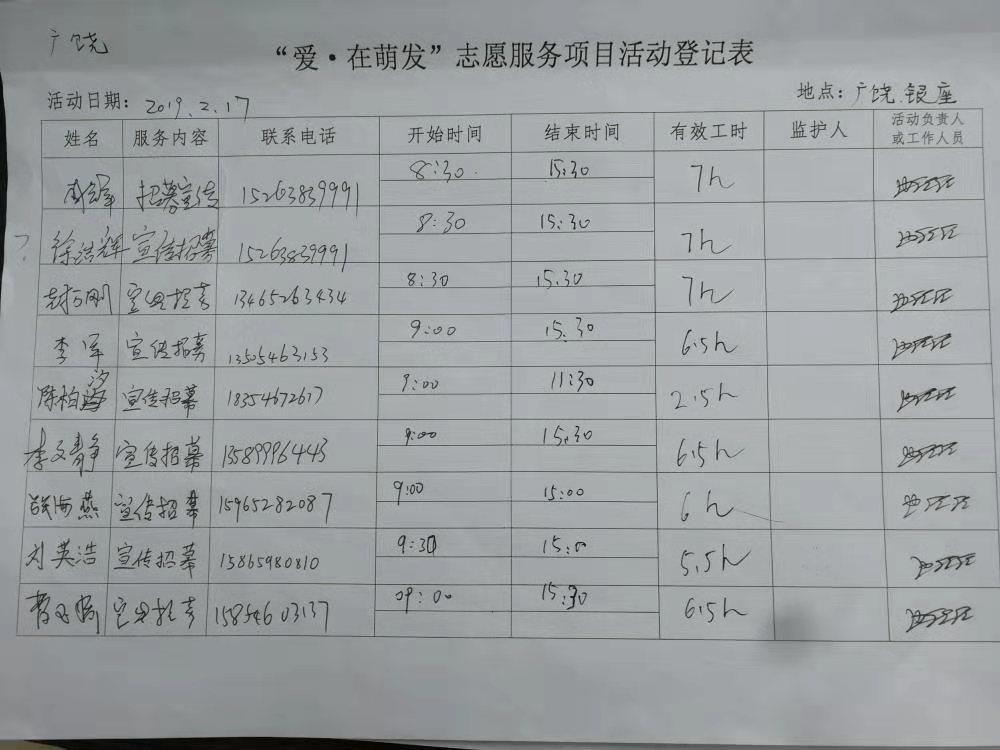 广饶
“爱·在萌发”志愿服务项目活动登记表
活动日期： 2019.2.17 地点：广饶.银座
姓名 服务内容 联系电话 开始时间 结束时间 有效工时 监护人 活动负责人
或工作人员
招募宣传 15263839991 8:30 15:30 7h
? 徐浩辉 宣传招募 15263839991 8:30 15:30 7h
宣传招募 13465263434 8:30 15:30 7h
李军 宣传招募 13505463153 9:00 15:30 6.5h
陈柏汐 宣传招募 18354672617 9:00 11:30 2.5h
李文静 宣传招募 13589996443 9:00 15:30 6.5h
海燕 宣传招募 15965282087 9:00 15:00 6h
刘英浩 宣传招募 15865980810 9:30 15:0 5.5h
宣传招募 15854603137 09:00 15:30 6.5h